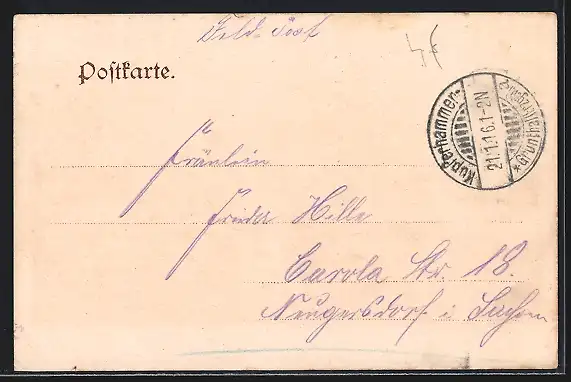 Feld-Post
Postkarte.
Kupferhammer-Grünthal
21.1.16.1-2N
Fräulein
Frieda Hille
Carola Str. 18.
Neugersdorf i. Sachsen